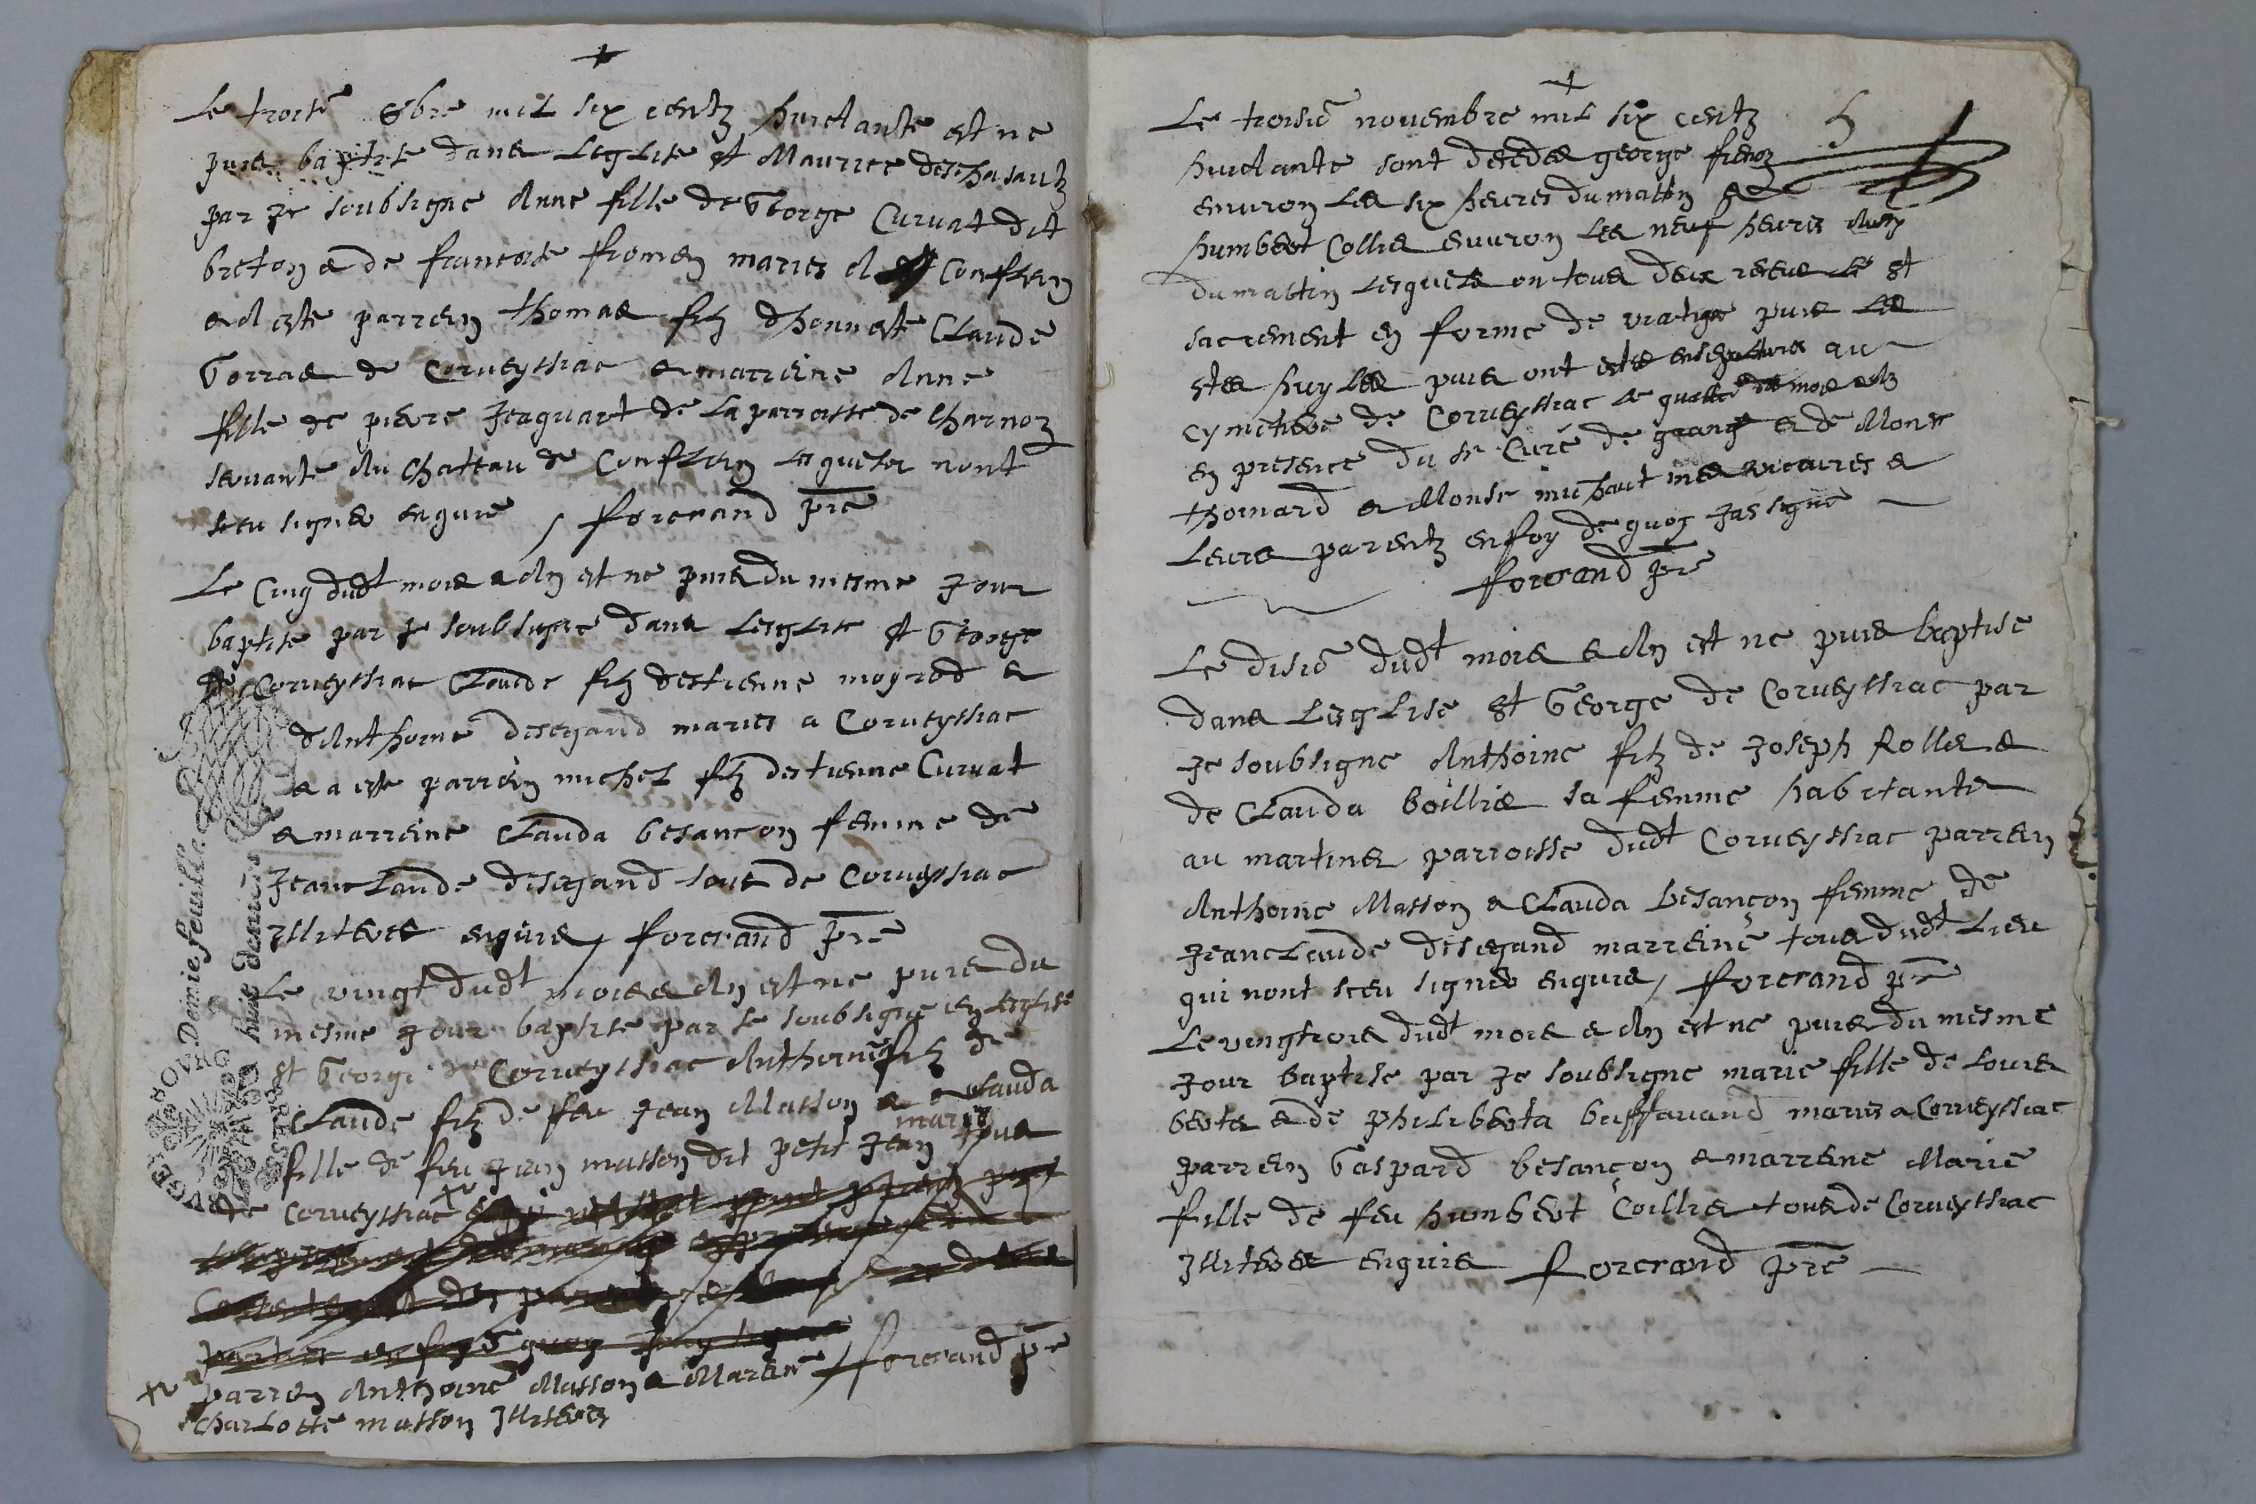 Le troise 8bre mil six centz huictante est ne
puis baptise dans leglise st Maurice deschasautz
par Je soubsigne Anne fille de George Curvat dit
breton & de francoise fromen maries a Conflern
& a este parrein thomas filz dhonneste Claude
Gorras de Corveyssiac & marreine Anne
fille de pierre Jeaguart de la parroisse de Charnoz
servante au Chatteau de Conflern lesquelz nont
sceu signer enquis / forcrand pre
Le Cinq dudt mois & An est ne puis du mesme Jour
baptise par Je soubsigne dans lesglise st George
de Corveyssiac Claude filz destienne moyrod &
dAnthoine disegand maries a Corveyssiac
& a este parrein michel filz destienne Curvat
& marreine Clauda besancon femme de
Jean Claude disegand tous de Corveyssiac
Illiteres enquis / forcrand pre
Le vingt dudt mois & An est ne puis du
mesme Jour baptise par Je soubsigne en leglise
st George de Corveyssiac Anthoine filz de
Claude filz de feu Jean Masson & Clauda
fille de feu Jean masson dit petit Jean maries tous
de Corveyssiac
parrein Anthoine Masson & Mareine / forcrand pre
Charlotte masson Illiteres
Demie feuille
huit deniers
BOURG
BRESSE
5
Le troisie novembre mil six centz
huictante sont decedes george frenoz
environ les six heures du matin &
humbert Collis environ les neuf heures
du mattin lesquels on tous deux receus le st
sacrement en forme de viatique puis les
stes huyles puis ont estes ensepultures au
cymetiere de Corveyssiac le quattre du mois & An
en presence du sr Curé de grange & de Monsr
thomard & Monsr michaut mes vicaires &
leurs parentz en foy de quoy Jay signe
forcrand pre
Le disie dudt mois & An est ne puis baptise
dans lesglise st George de Corveyssiac par
Je soubsigne Anthoine filz de Joseph Rolle &
de Clauda boillie sa femme habitants
au martine parroisse dudt Corveyssiac parrein
Anthoine Masson & Clauda besançon femme de
Jean Claude disegand marreine tous dudt lieu
qui nont sceu signer enquis / forcrand pre
Le vingtrois dudt mois & An est ne puis du mesme
Jour baptise par Je soubsigne marie fille de Louis
berte & de philiberta buffavand maries a Corveyssiac
parrein Gaspard besançon & marreine Marie
fille de feu humbert Coillie tous de Corveyssiac
Illiteres enquis forcrand pre